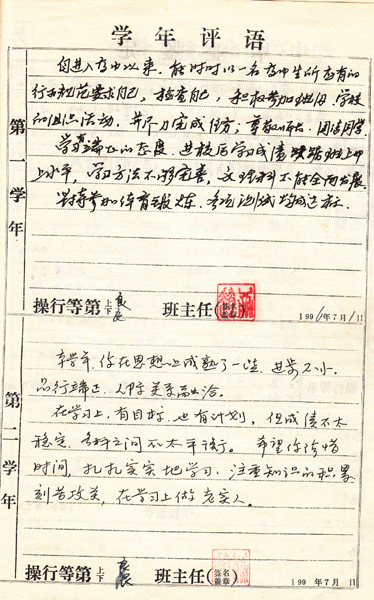 学年评语
第一学年
自进入高中以来,能时时以一名高中生所应有的
行为规范要求自己,检查自己,积极参加班内、学校
的组织活动,并尽力完成任务;尊敬师长,团结同学。
学习端正的态度,进校后学习成绩 班上中
上水平,学习方法不够完善,文理科不能全面发展。
坚持参加体育锻炼,各项测试均成达标。
操行等第 上下 良 班主任(签名盖章) 1991年7月1日
第二学年
本学年,你在思想上成熟了一些,进步不小,
品行端正,人际关系融洽。
在学习上,有目标,也有计划,但成绩不太
稳定,各科之间不太平衡。希望你珍惜
时间,扎扎实实地学习,注重知识的积累
刻苦攻关,在学习上做老实人。
操行等第 上下 良 班主任(签名盖章) 199 年7月 日